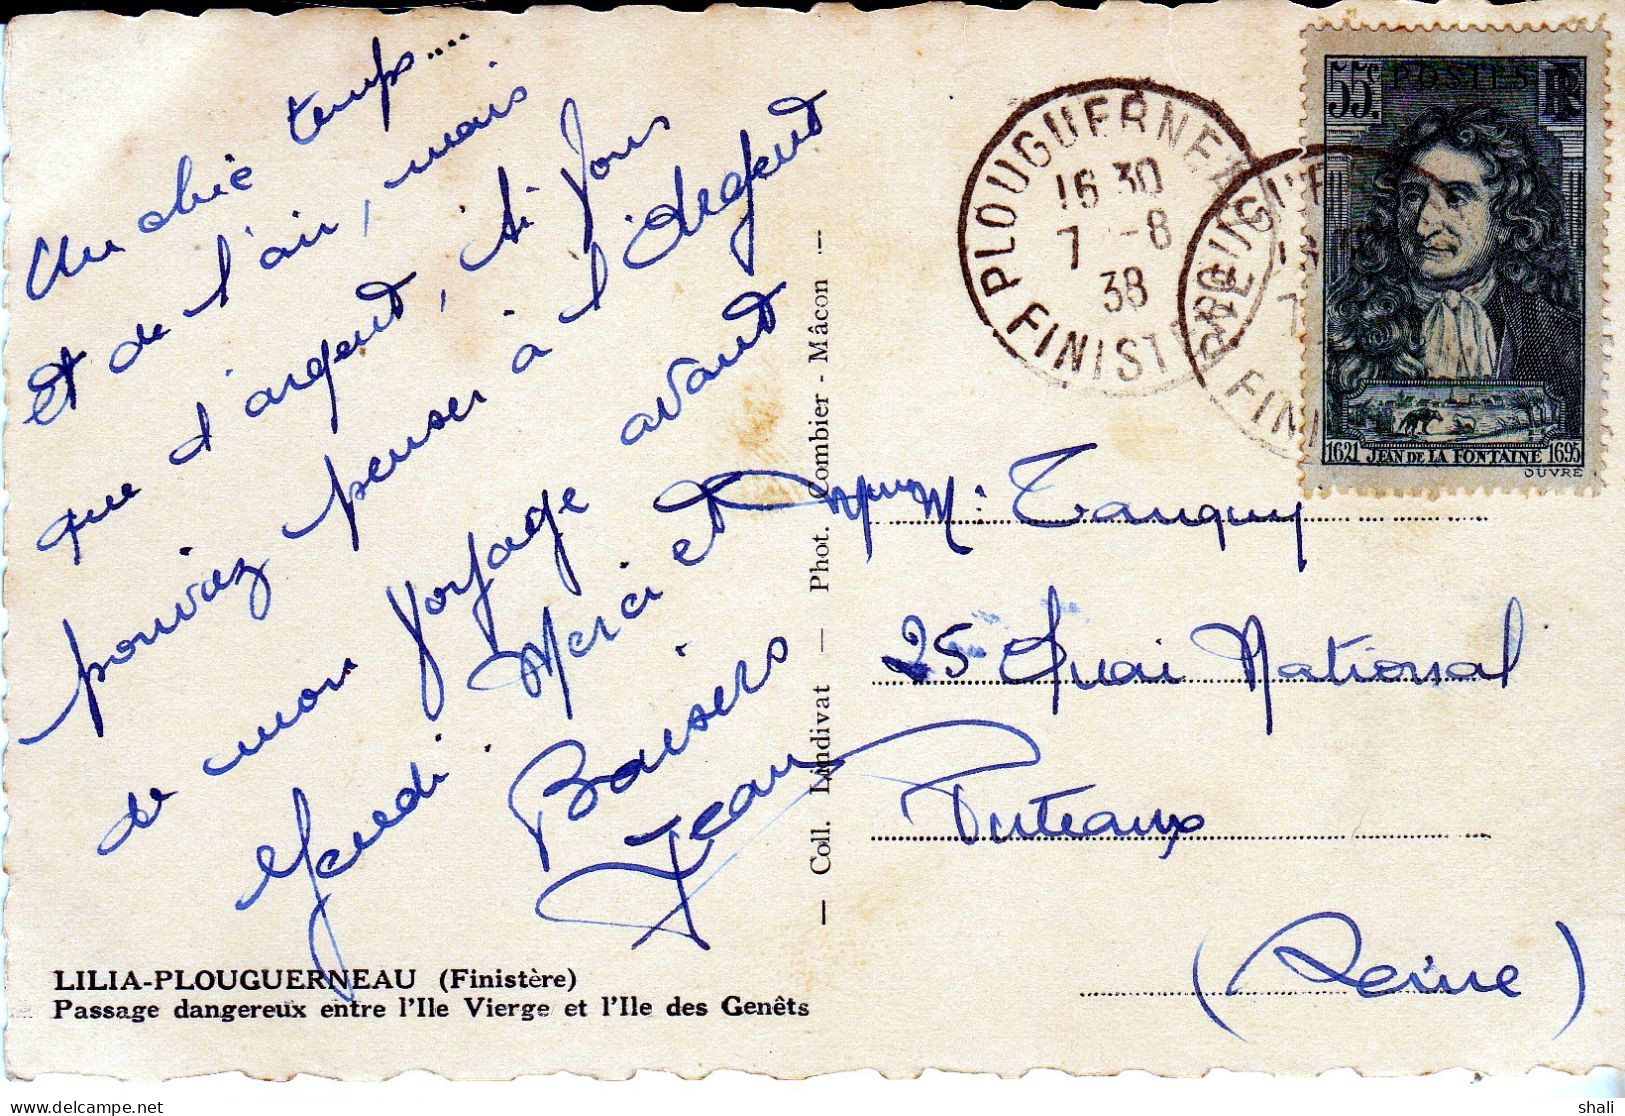 Un chic temps....
et de l'air, mais
que d'argent, si vous
pouviez penser à l'argent
de mon voyage avant
Mardi. Merci et
Baisers
Jean
LILIA-PLOUGUERNEAU (Finistère)
Passage dangereux entre l'Ile Vierge et l'Ile des Genêts
— Coll. Lindivat — Phot. Combier - Mâcon —
PLOUGUERNEAU
16 30
7 -8
38
FINISTERE
55c. POSTES RF
1621 JEAN DE LA FONTAINE 1695
OUVRÉ
M: Tanguy
25 Quai National
Puteaux
(Seine)
delcampe.net
shali